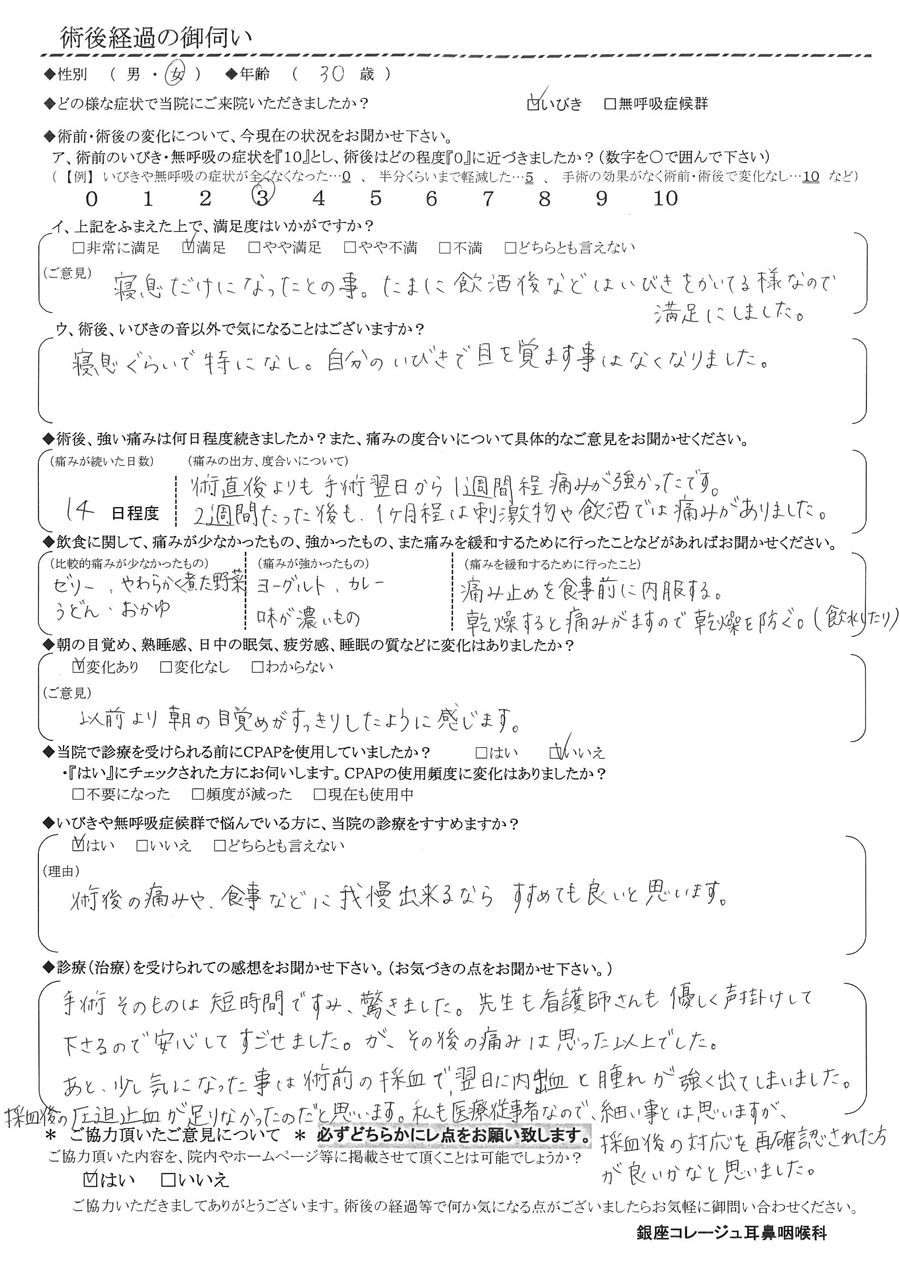 術後経過の御伺い
◆性別 ( 男 ・ 女 ) ◆年齢 ( 30 歳 )
◆どの様な症状で当院にご来院いただきましたか? ☑いびき □無呼吸症候群
◆術前・術後の変化について、今現在の状況をお聞かせ下さい。
ア、術前のいびき・無呼吸の症状を『10』とし、術後はどの程度『0』に近づきましたか?(数字を〇で囲んで下さい)
(【例】いびきや無呼吸の症状が全くなくなった…0 、 半分くらいまで軽減した…5 、 手術の効果がなく術前・術後で変化なし…10 など)
0 1 2 3 4 5 6 7 8 9 10
イ、上記をふまえた上で、満足度はいかがですか?
□非常に満足 ☑満足 □やや満足 □やや不満 □不満 □どちらとも言えない
(ご意見)
寝息だけになったとの事。たまに飲酒後などはいびきをかいてる様なので
満足にしました。
ウ、術後、いびきの音以外で気になることはございますか?
寝息ぐらいで特になし。自分のいびきで目を覚ます事はなくなりました。
◆術後、強い痛みは何日程度続きましたか?また、痛みの度合いについて具体的なご意見をお聞かせください。
(痛みが続いた日数) (痛みの出方、度合いについて)
術直後よりも手術翌日から1週間程痛みが強かったです。
14 日程度 2週間たった後も、1ヶ月程は刺激物や飲酒では痛みがありました。
◆飲食に関して、痛みが少なかったもの、強かったもの、また痛みを緩和するために行ったことなどがあればお聞かせください。
(比較的痛みが少なかったもの) (痛みが強かったもの) (痛みを緩和するために行ったこと)
ゼリー、やわらかく煮た野菜 ヨーグルト、カレー 痛み止めを食事前に内服する。
うどん・おかゆ 味が濃いもの 乾燥すると痛みがますので乾燥を防ぐ。(飲水したり)
◆朝の目覚め、熟睡感、日中の眠気、疲労感、睡眠の質などに変化はありましたか?
☑変化あり □変化なし □わからない
(ご意見)
以前より朝の目覚めがすっきりしたように感じます。
◆当院で診療を受けられる前にCPAPを使用していましたか? □はい ☑いいえ
・『はい』にチェックされた方にお伺いします。CPAPの使用頻度に変化はありましたか?
□不要になった □頻度が減った □現在も使用中
◆いびきや無呼吸症候群で悩んでいる方に、当院の診療をすすめますか?
☑はい □いいえ □どちらとも言えない
(理由)
術後の痛みや、食事などに我慢出来るなら すすめても良いと思います。
◆診療(治療)を受けられての感想をお聞かせ下さい。(お気づきの点をお聞かせ下さい。)
手術そのものは短時間ですみ、驚きました。先生も看護師さんも優しく声掛けして
下さるので安心してすごせました。が、その後の痛みは思った以上でした。
あと、少し気になった事は術前の採血で翌日に内出血と腫れが強く出てしまいました。
採血後の圧迫止血が足りなかったのだと思います。私も医療従事者なので、細い事とは思いますが、
採血後の対応を再確認された方
が良いかなと思いました。
* ご協力頂いたご意見について * 必ずどちらかにレ点をお願い致します。
ご協力頂いた内容を、院内やホームページ等に掲載させて頂くことは可能でしょうか?
☑はい □いいえ
ご協力いただきましてありがとうございます。術後の経過等で何か気になる点がございましたらお気軽に御問い合わせください。
銀座コレージュ耳鼻咽喉科